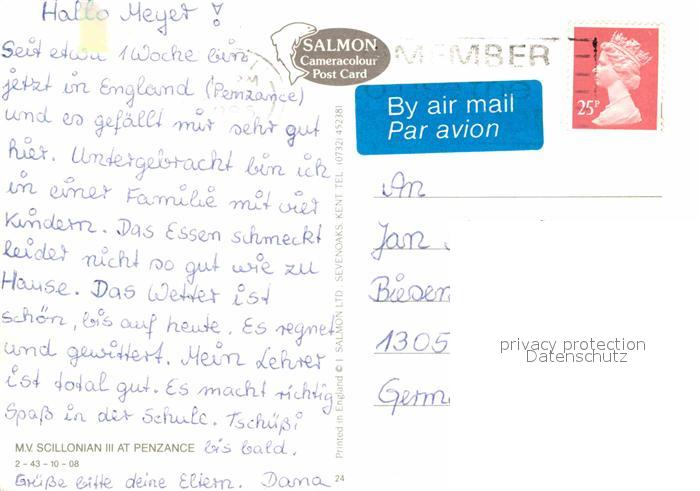 Hallo Meyer!
Seit etwa 1 Woche bin
jetzt in England (Penzance)
und es gefällt mir sehr gut
hier. Untergebracht bin ich
in einer Familie mit vier
Kindern. Das Essen schmeckt
leider nicht so gut wie zu
Hause. Das Wetter ist
schön, bis auf heute. Es regnet
und gewittert. Mein Lehrer
ist total gut. Es macht richtig
Spaß in der Schule. Tschüßi
bis bald.
Grüße bitte deine Eltern. Dana
M.V. SCILLONIAN III AT PENZANCE
2-43-10-08
24
Printed in England © J SALMON LTD. SEVENOAKS. KENT TEL. (0732) 452381
SALMON
Cameracolour
Post Card
MEMBER
25P
By air mail
Par avion
An
Jan
Bieser
1305
Germ
privacy protection
Datenschutz